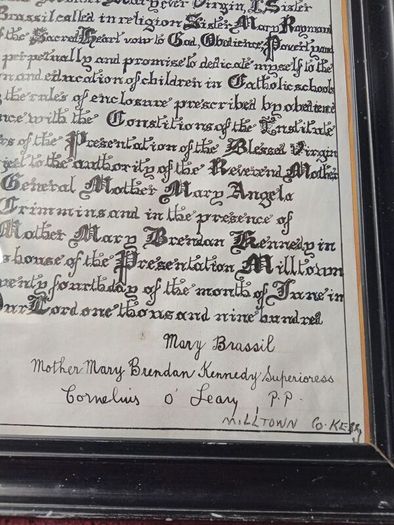 ever Virgin, I, Sister
Brassil called in religion Sister Mary Raymond
of the Sacred Heart vow to God, Obedience, Poverty, and
perpetually and promise to dedicate myself to the
and education of children in Catholic schools
the rules of enclosure prescribed by obedience
with the Constitutions of the Institute
of the Presentation of the Blessed Virgin
to the authority of the Reverend Mother
General Mother Mary Angela
Crimmins and in the presence of
Mother Mary Brendan Kennedy in
house of the Presentation Milltown
fourth day of the month of June in
Our Lord one thousand nine hundred
Mary Brassil
Mother Mary Brendan Kennedy Superioress
Cornelius O' Leary P.P.
MILLTOWN CO. KERRY